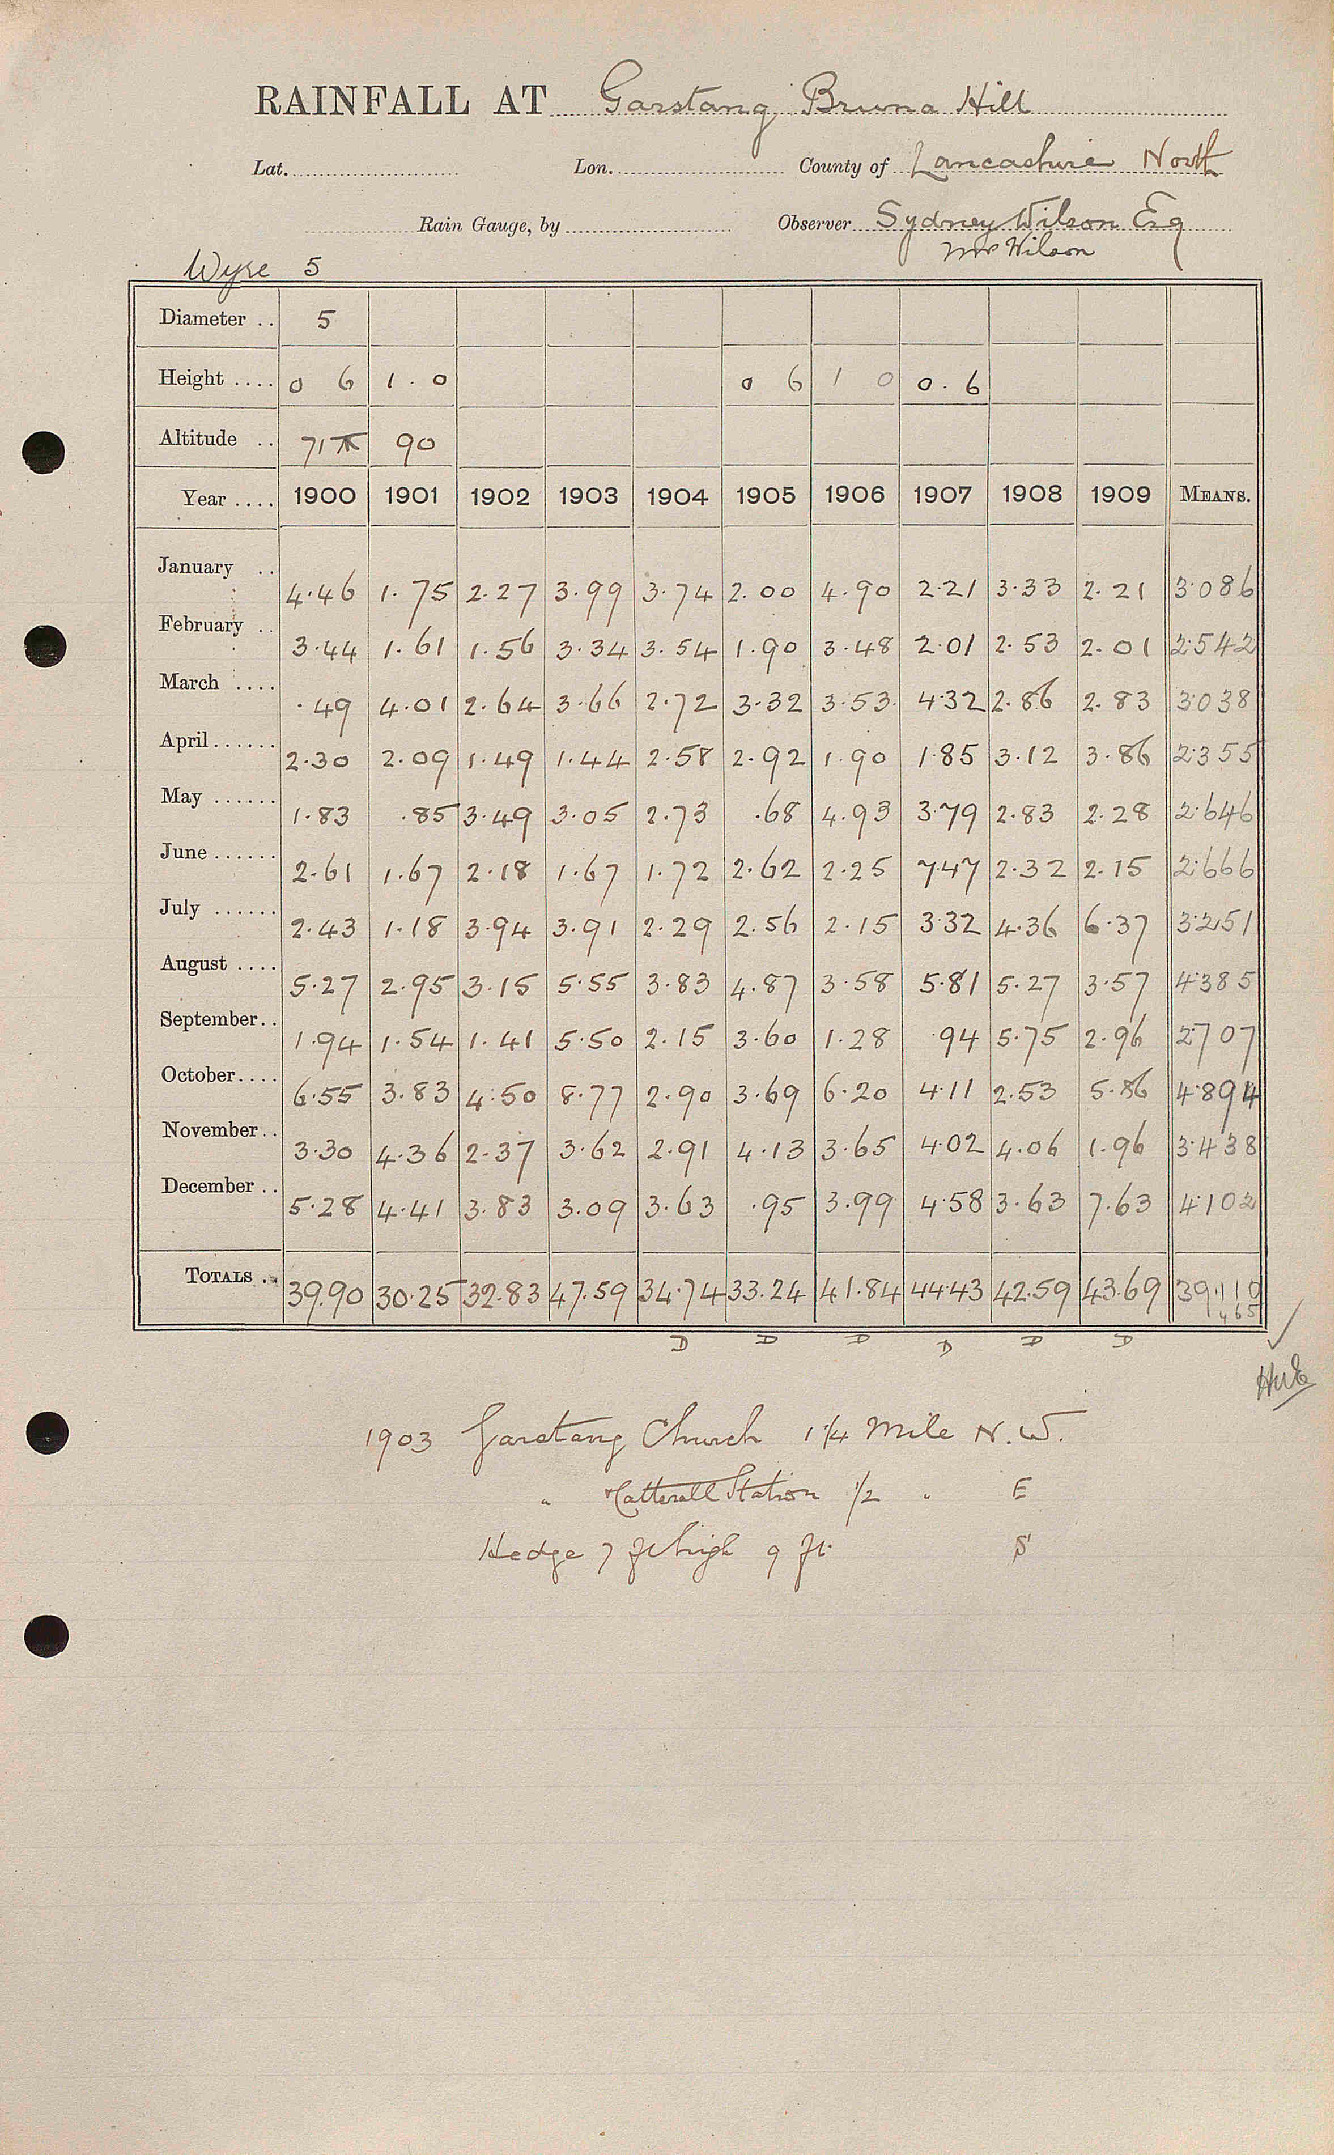 RAINFALL AT Garstang Bruna Hill
Lat. Lon. County of Lancashire North
Rain Gauge, by Observer Sydney Wilson Esq
Mr Wilson
Wyre 5
Diameter .. 5
Height .... 0 6 1.0 0 6 1 0 0.6
Altitude .. 71 90
Year .... 1900 1901 1902 1903 1904 1905 1906 1907 1908 1909 MEANS.
January .. 4.46 1.75 2.27 3.99 3.74 2.00 4.90 2.21 3.33 2.21 3.086
February .. 3.44 1.61 1.56 3.34 3.54 1.90 3.48 2.01 2.53 2.01 2.542
March .... .49 4.01 2.64 3.66 2.72 3.32 3.53 4.32 2.86 2.83 3.038
April...... 2.30 2.09 1.49 1.44 2.58 2.92 1.90 1.85 3.12 3.86 2.355
May ...... 1.83 .85 3.49 3.05 2.73 .68 4.93 3.79 2.83 2.28 2.646
June...... 2.61 1.67 2.18 1.67 1.72 2.62 2.25 7.47 2.32 2.15 2.666
July ...... 2.43 1.18 3.94 3.91 2.29 2.56 2.15 3.32 4.36 6.37 3.251
August .... 5.27 2.95 3.15 5.55 3.83 4.87 3.58 5.81 5.27 3.57 4.385
September.. 1.94 1.54 1.41 5.50 2.15 3.60 1.28 .94 5.75 2.96 2.707
October.... 6.55 3.83 4.50 8.77 2.90 3.69 6.20 4.11 2.53 5.86 4.894
November.. 3.30 4.36 2.37 3.62 2.91 4.13 3.65 4.02 4.06 1.96 3.438
December .. 5.28 4.41 3.83 3.09 3.63 .95 3.99 4.58 3.63 7.63 4.102
TOTALS .. 39.90 30.25 32.83 47.59 34.74 33.24 41.84 44.43 42.59 43.69 39.110
D D D D D D
1903 Garstang Church 1 1/4 Mile N.W.
" Catterall Station 1/2 " E
Hedge 7 ft high 9 ft S